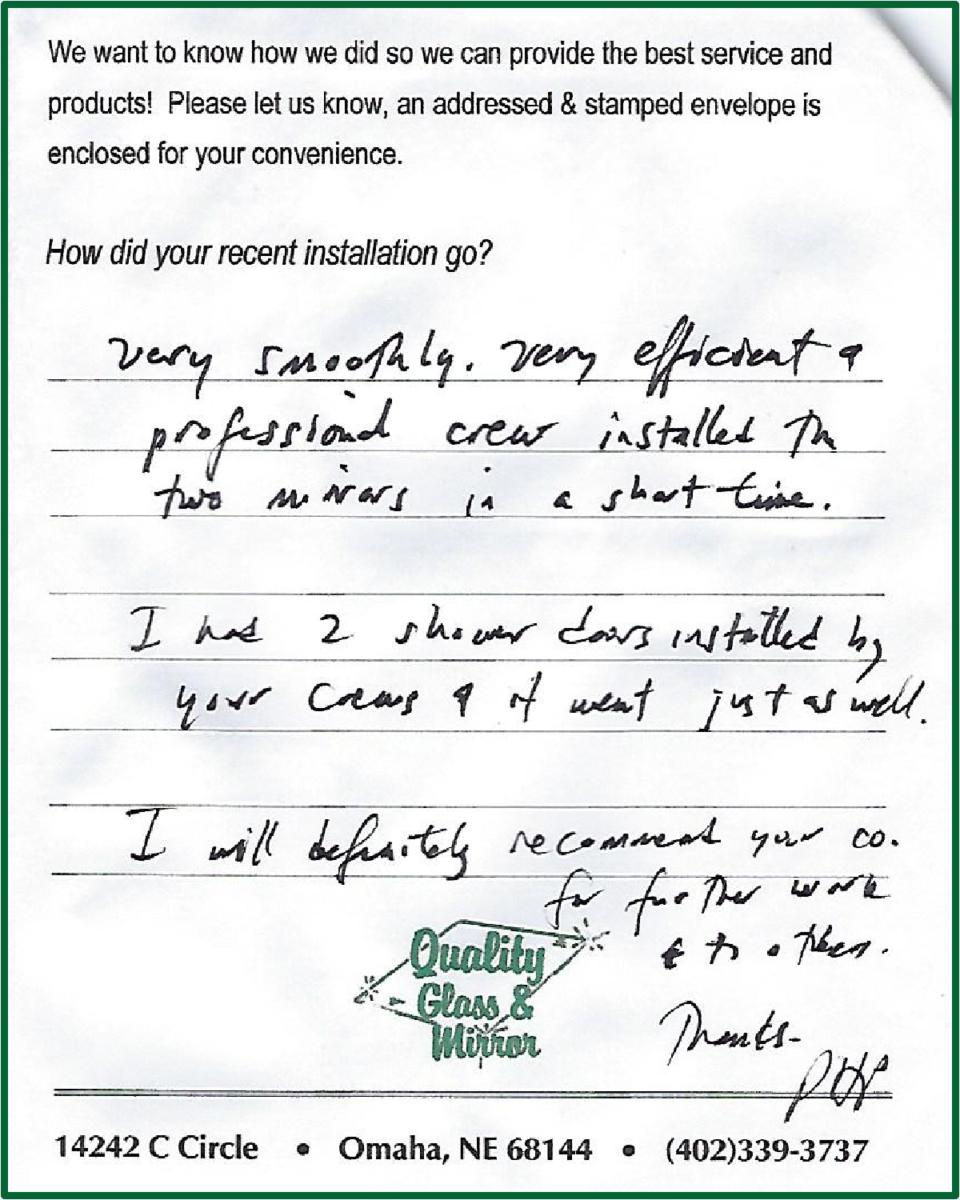 We want to know how we did so we can provide the best service and
products! Please let us know, an addressed & stamped envelope is
enclosed for your convenience.
How did your recent installation go?
Very smoothly. Very efficient &
professional crew installed the
two mirrors in a short time.
I had 2 shower doors installed by
your crews & it went just as well.
I will definitely recommend your co.
for further work
& to others.
Quality
Glass &
Mirror
Thanks-
14242 C Circle • Omaha, NE 68144 • (402)339-3737